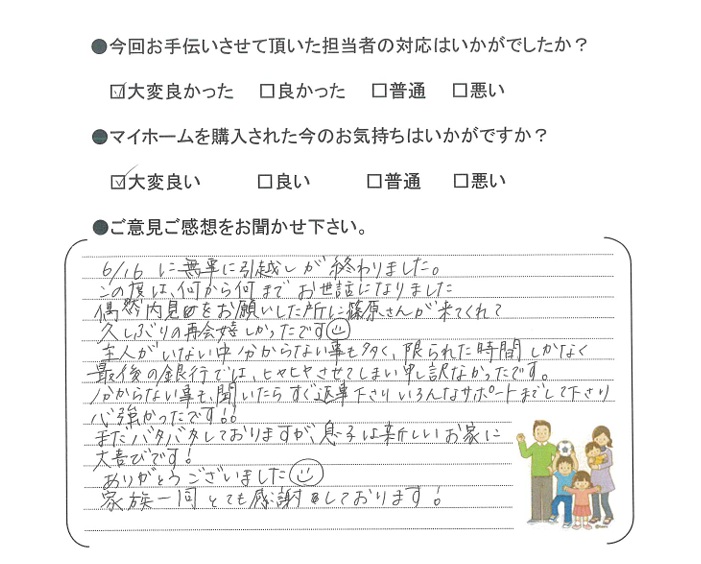 ●今回お手伝いさせて頂いた担当者の対応はいかがでしたか？
☑大変良かった □良かった □普通 □悪い
●マイホームを購入された今のお気持ちはいかがですか？
☑大変良い □良い □普通 □悪い
●ご意見ご感想をお聞かせ下さい。
6/16 に無事に引越しが終わりました。
この度は、何から何までお世話になりました
偶然内見をお願いした所に篠原さんが来てくれて
久しぶりの再会嬉しかったです☺
主人がいない中分からない事も多く、限られた時間しかなく
最後の銀行では、ヒヤヒヤさせてしまい申し訳なかったです。
分からない事も、聞いたらすぐ返事下さりいろんなサポートまでして下さり
心強かったです!!
まだバタバタしておりますが、息子は新しいお家に
大喜びです!
ありがとうございました☺
家族一同とても感謝しております!